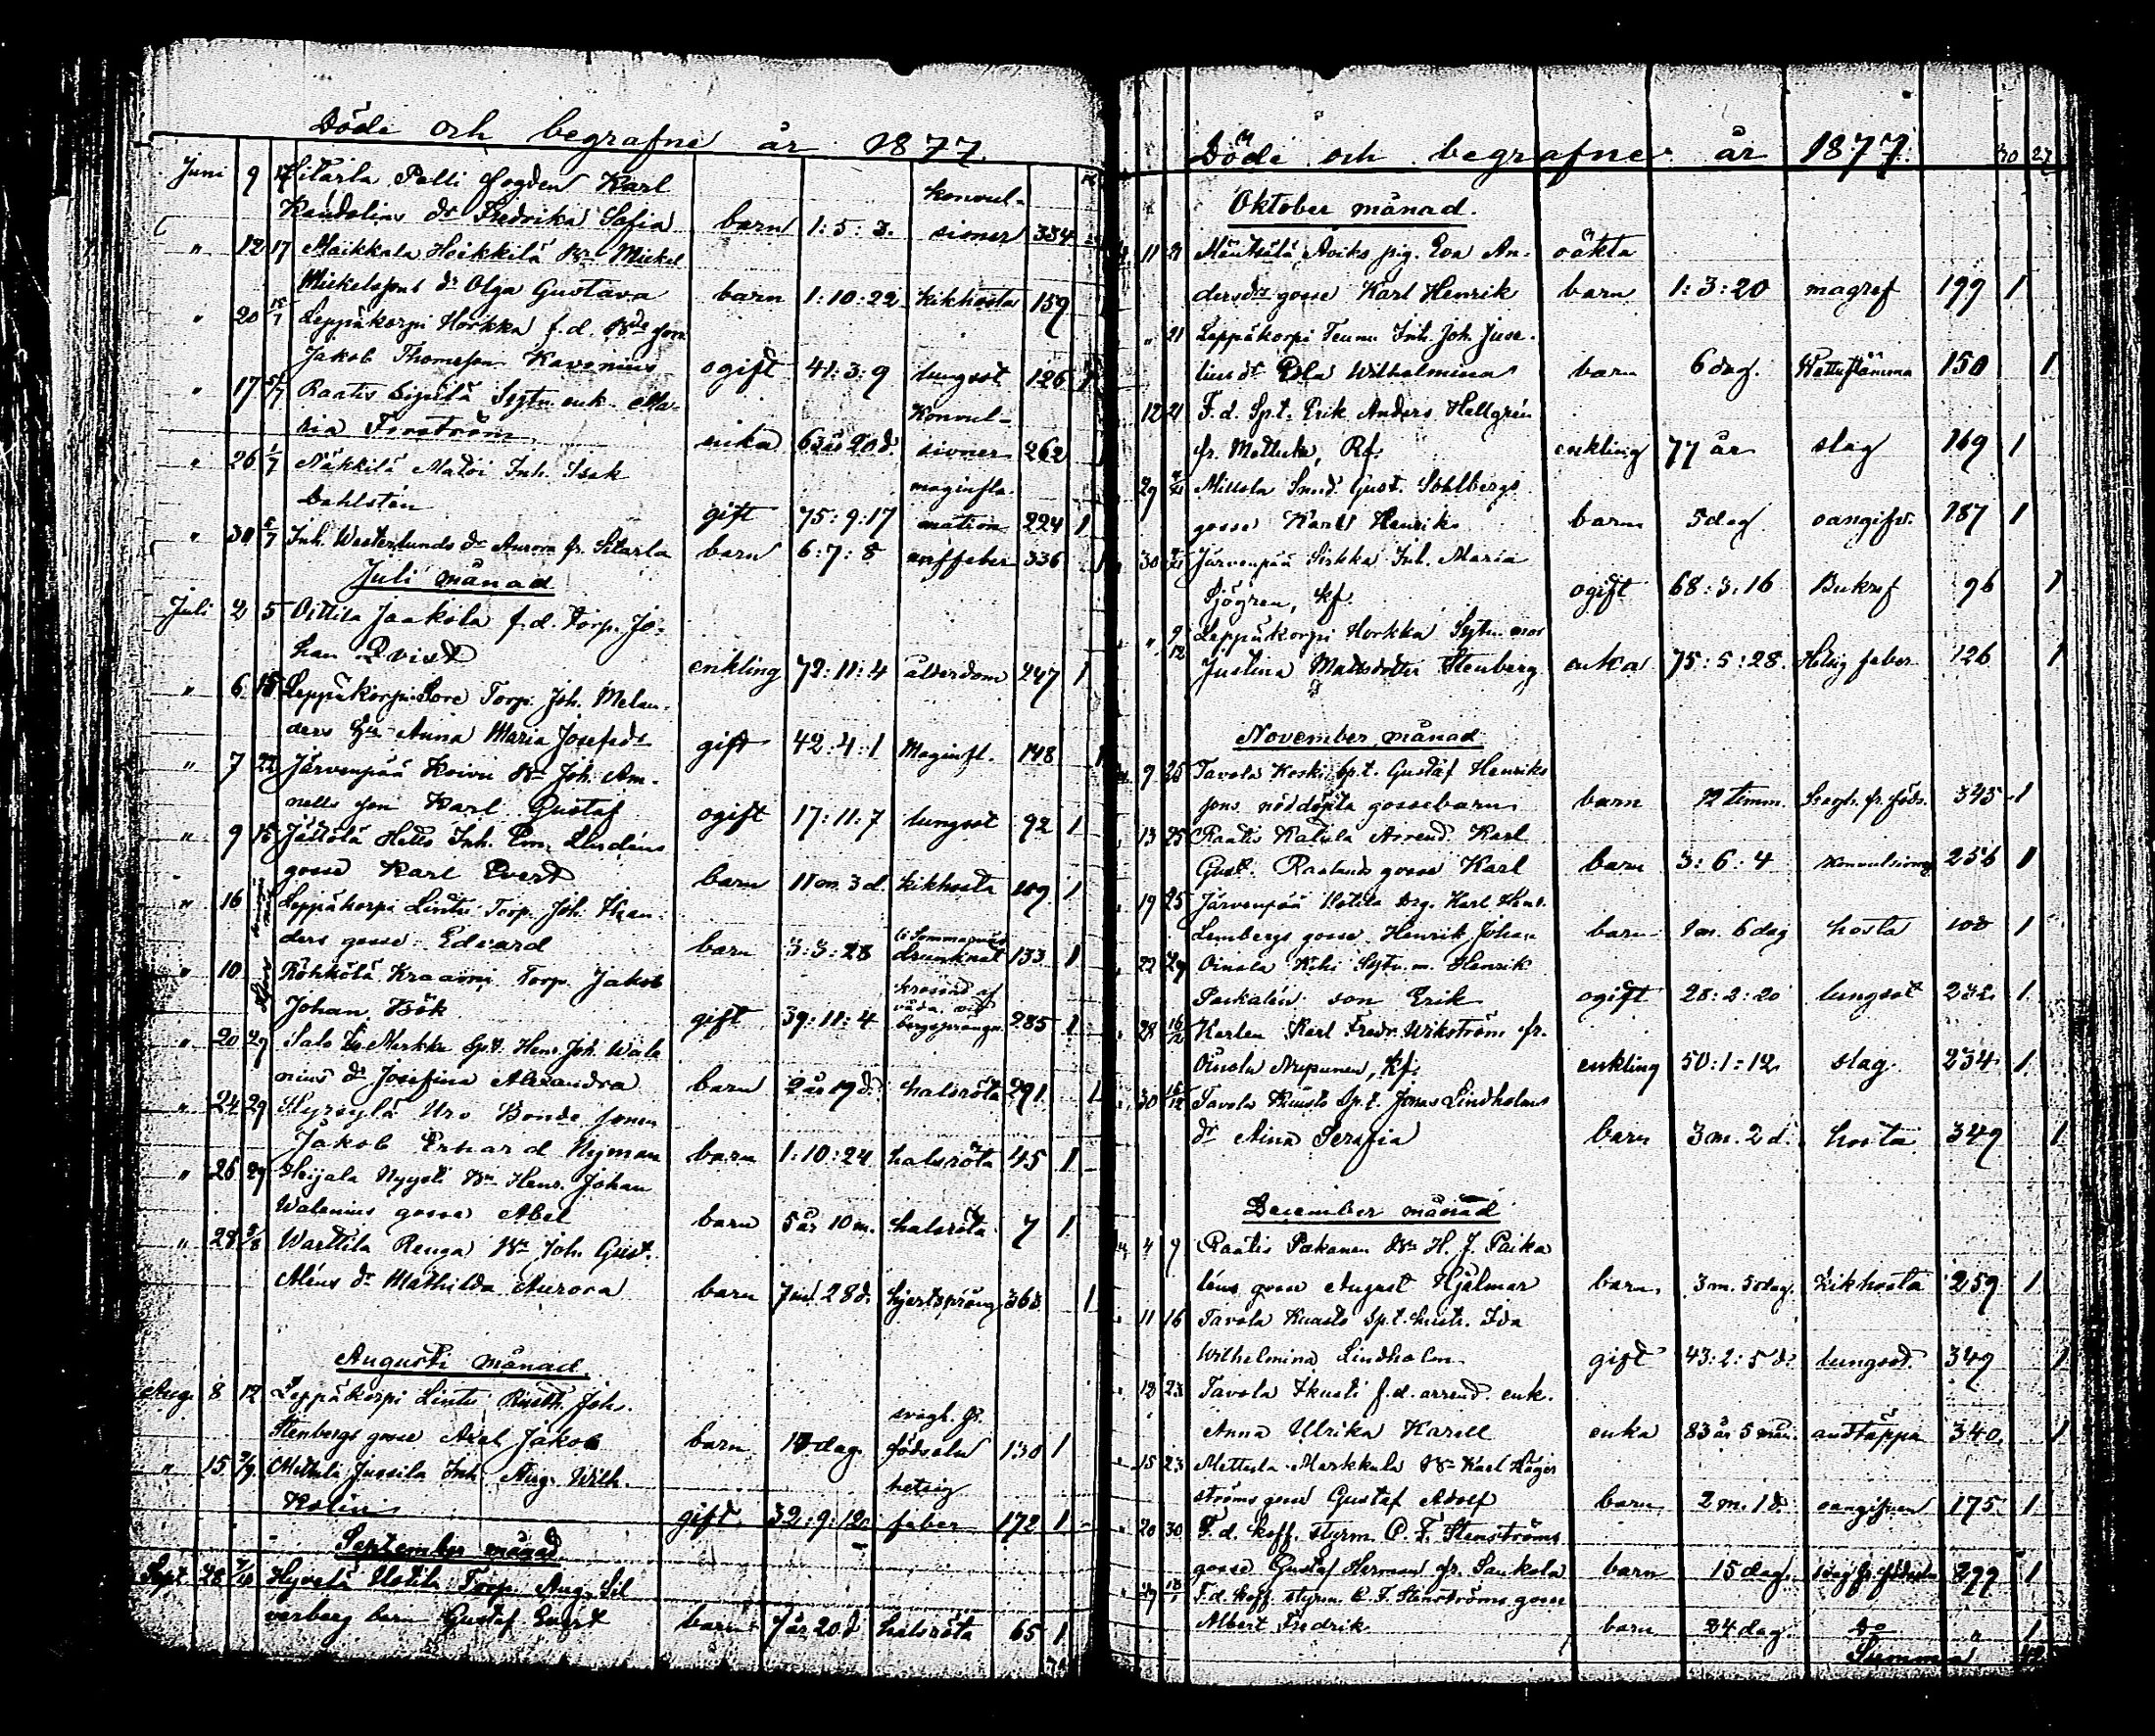 Döde och begrafne år 1877
Juni 9 Sitarla Pelli fogden Karl
Kandolins dr Fredrika Sofia barn 1:5:3. konvulsioner 334
" 12 17 Maikkala Heikkilä Bn Mickel
Mickelssons dr Olga Gustava barn 1:10:22 kikhosta 159
" 20 Leppäkorpi Horkka f.d. Bde son
Jakob Thomsson Kavenius ogift 41:3:9 lungsot 126 1
" 17 5/7 Raatis Sytn. enk. Ma-
ria Forström enka 63 år 20 d. Konvulsioner 262
" 26 1/7 Näkkilä Matoi Inh. Isak
Dahlstén gift 75:9:17 maginflamation 224 1
" 30 8/7 Inh. Westerlunds dr Aurora fr. Sitarla barn 6:7:8 nerffeber 336 1
Juli månad
Juli 2 5 Oittila Jaakola f.d. Torp. Jo-
han Qvist enkling 72:11:4 ålderdom 247 1
" 6 15 Leppäkorpi Sore Torp. Joh. Melan-
ders Hu Anna Maria Josefsdr gift 42:4:1 Maginfl. 148 1
" 7 22 Järvenpää Koivu Bn Joh. Am-
nells son Karl Gustaf ogift 17:11:7 lungsot 92 1
" 9 15 Jättölä Hells Inh. Em. Lindéns
gosse Karl Evert barn 11 m. 3 d. kikhosta 109 1
" 16 Leppäkorpi Lintu Torp. Joh.
ders gosse Edvard barn 3:3:28 drunknat 133 1
" 10 Röhkölä Kraami Torp. Jakob
Johan Bök gift 39:11:4 krossad af våda vid bergsprängn. 285 1
" 20 29 Salo Markku Sp.t. Henr. Joh. Wale
nius dr Josefina Alexandra barn 2 år 19 d. halsröta 291 1
" 24 29 Hyrsylä Uro Bonde sonen
Jakob Ernard Nyman barn 1:10:24 halsröta 45 1
" 26 29 Heijala Nyysti Bn Henr. Johan
Walenius gosse Abel barn 5 år 10 m. halsröta 7 1
" 28 5/8 Warttila Renga Bn Joh. Gust.
Aléns dr Mathilda Aurora barn 7 m. 28 d. hjertsprång 363 1
Augusti månad
Aug. 8 12 Leppäkorpi Lintu Joh.
Stenbergs gosse Axel Jakob barn dag. svagh. fr. födseln 130 1
" 15 Mettula Jussila Inh. Aug. Wilh.
Kolin gift 32:9:12 hetsig feber 172 1
September månad
Sept. 28 7/10 Hyvelä Uotila Torp. Aug. Sil
verberg barn Gustaf Evert barn 7 år 20 d halsröta 65 1
Döde och begrafne år 1877. 30 27
Oktober månad.
11 21 Mäntsälä Aviks pig. Eva An-
dersdrs gosse Karl Henrik oäkta barn 1:3:20 magref 199 1
" 21 Leppäkorpi Teunu Inh. Joh. Juse-
lius dr Eda Wilhelmina barn 6 dag. 150 1
12 21 F.d. Sp.t. Erik Anders Hellgrén
fr. Mettula, Kf. enkling 77 år slag 169 1
29 Millola Smed. Gust. Sohlbergs
gosse Karl Henrik barn 5 dag oangifv. 187 1
30 Järvenpää Sirkka Inh. Maria
Sjögren, kf. ogift 68:3:16 Bukref 96 1
" 9/12 Leppäkorpi Horkka Sytn. mor
Justina Mattsdotter Stenberg enka 75:5:28 Hetsig feber 126 1
November månad
9 25 Tavola Koski Sp.t. Gustaf Henriks
sons nöddöpta gossebarn barn 12 timm. Svagh. fr. föds. 345 1
13 25 Raatis Katula Arrend. Karl
Gust. gosse Karl barn 3:6:4 Konvulsioner 256 1
19 25 Järvenpää Uotila Drg. Karl Henr.
Lembergs gosse Henrik Johan barn 6 dag hosta 100 1
22 29 Oinola Kihi Sytn. m. Henrik
Paskalén son Erik ogift 28:2:20 lungsot 232 1
28 16/12 Karlen Karl Fredr. Wikström fr.
Oinola Nupunen, Kf. enkling 50:1:12 slag. 234 1
30 16/12 Tavola Knusts Sp.t. Jonas Lindholms
dr Aina Serafia barn 3 m. 2 d. hosta 349 1
December månad
4 9 Raatis Pakanen Bn H. J. Paika
léns gosse August Hjalmar barn 3 m. 5 dag. kikhosta 259 1
11 16 Tavola Knusts Sp.t. hustr. Ida
Wilhelmina Lindholm gift 43:2:5 d. lungsot. 349 1
13 23 Tavola f.d. arrend. enk.
Anna Ulrika Karell enka 83 år 5 mån. andtäppa 340. 1
15 23 Mettula Markkula Bn Karl Häger
ströms gosse Gustaf Adolf barn 2 m. 1 d. oangifven 175 1
20 30 F.d. Koff. styrm. C. F. Stenströms
gosse Gustaf Herman fr. Sankola barn 15 dag. svag fr. födseln 299 1
F.d. Koff. styrm. C. F. Stenströms gosse
Albert Fredrik barn 24 dag. Do " 1
Summa